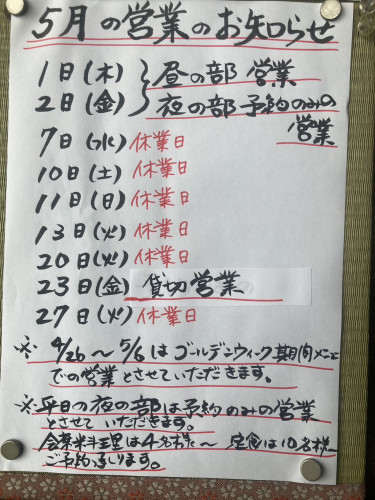 5月の営業のお知らせ
1日(木) 昼の部 営業
2日(金) 夜の部予約のみの
営業
7日(水) 休業日
10日(土) 休業日
11日(日) 休業日
13日(火) 休業日
20日(火) 休業日
23日(金) 貸切営業
27日(火) 休業日
※ 4/26〜5/6はゴールデンウィーク期間メニュー
での営業とさせていただきます。
※平日の夜の部は予約のみの営業
とさせていただきます。
会席料理は4名様〜 定食は10名様〜
ご予約承ります。